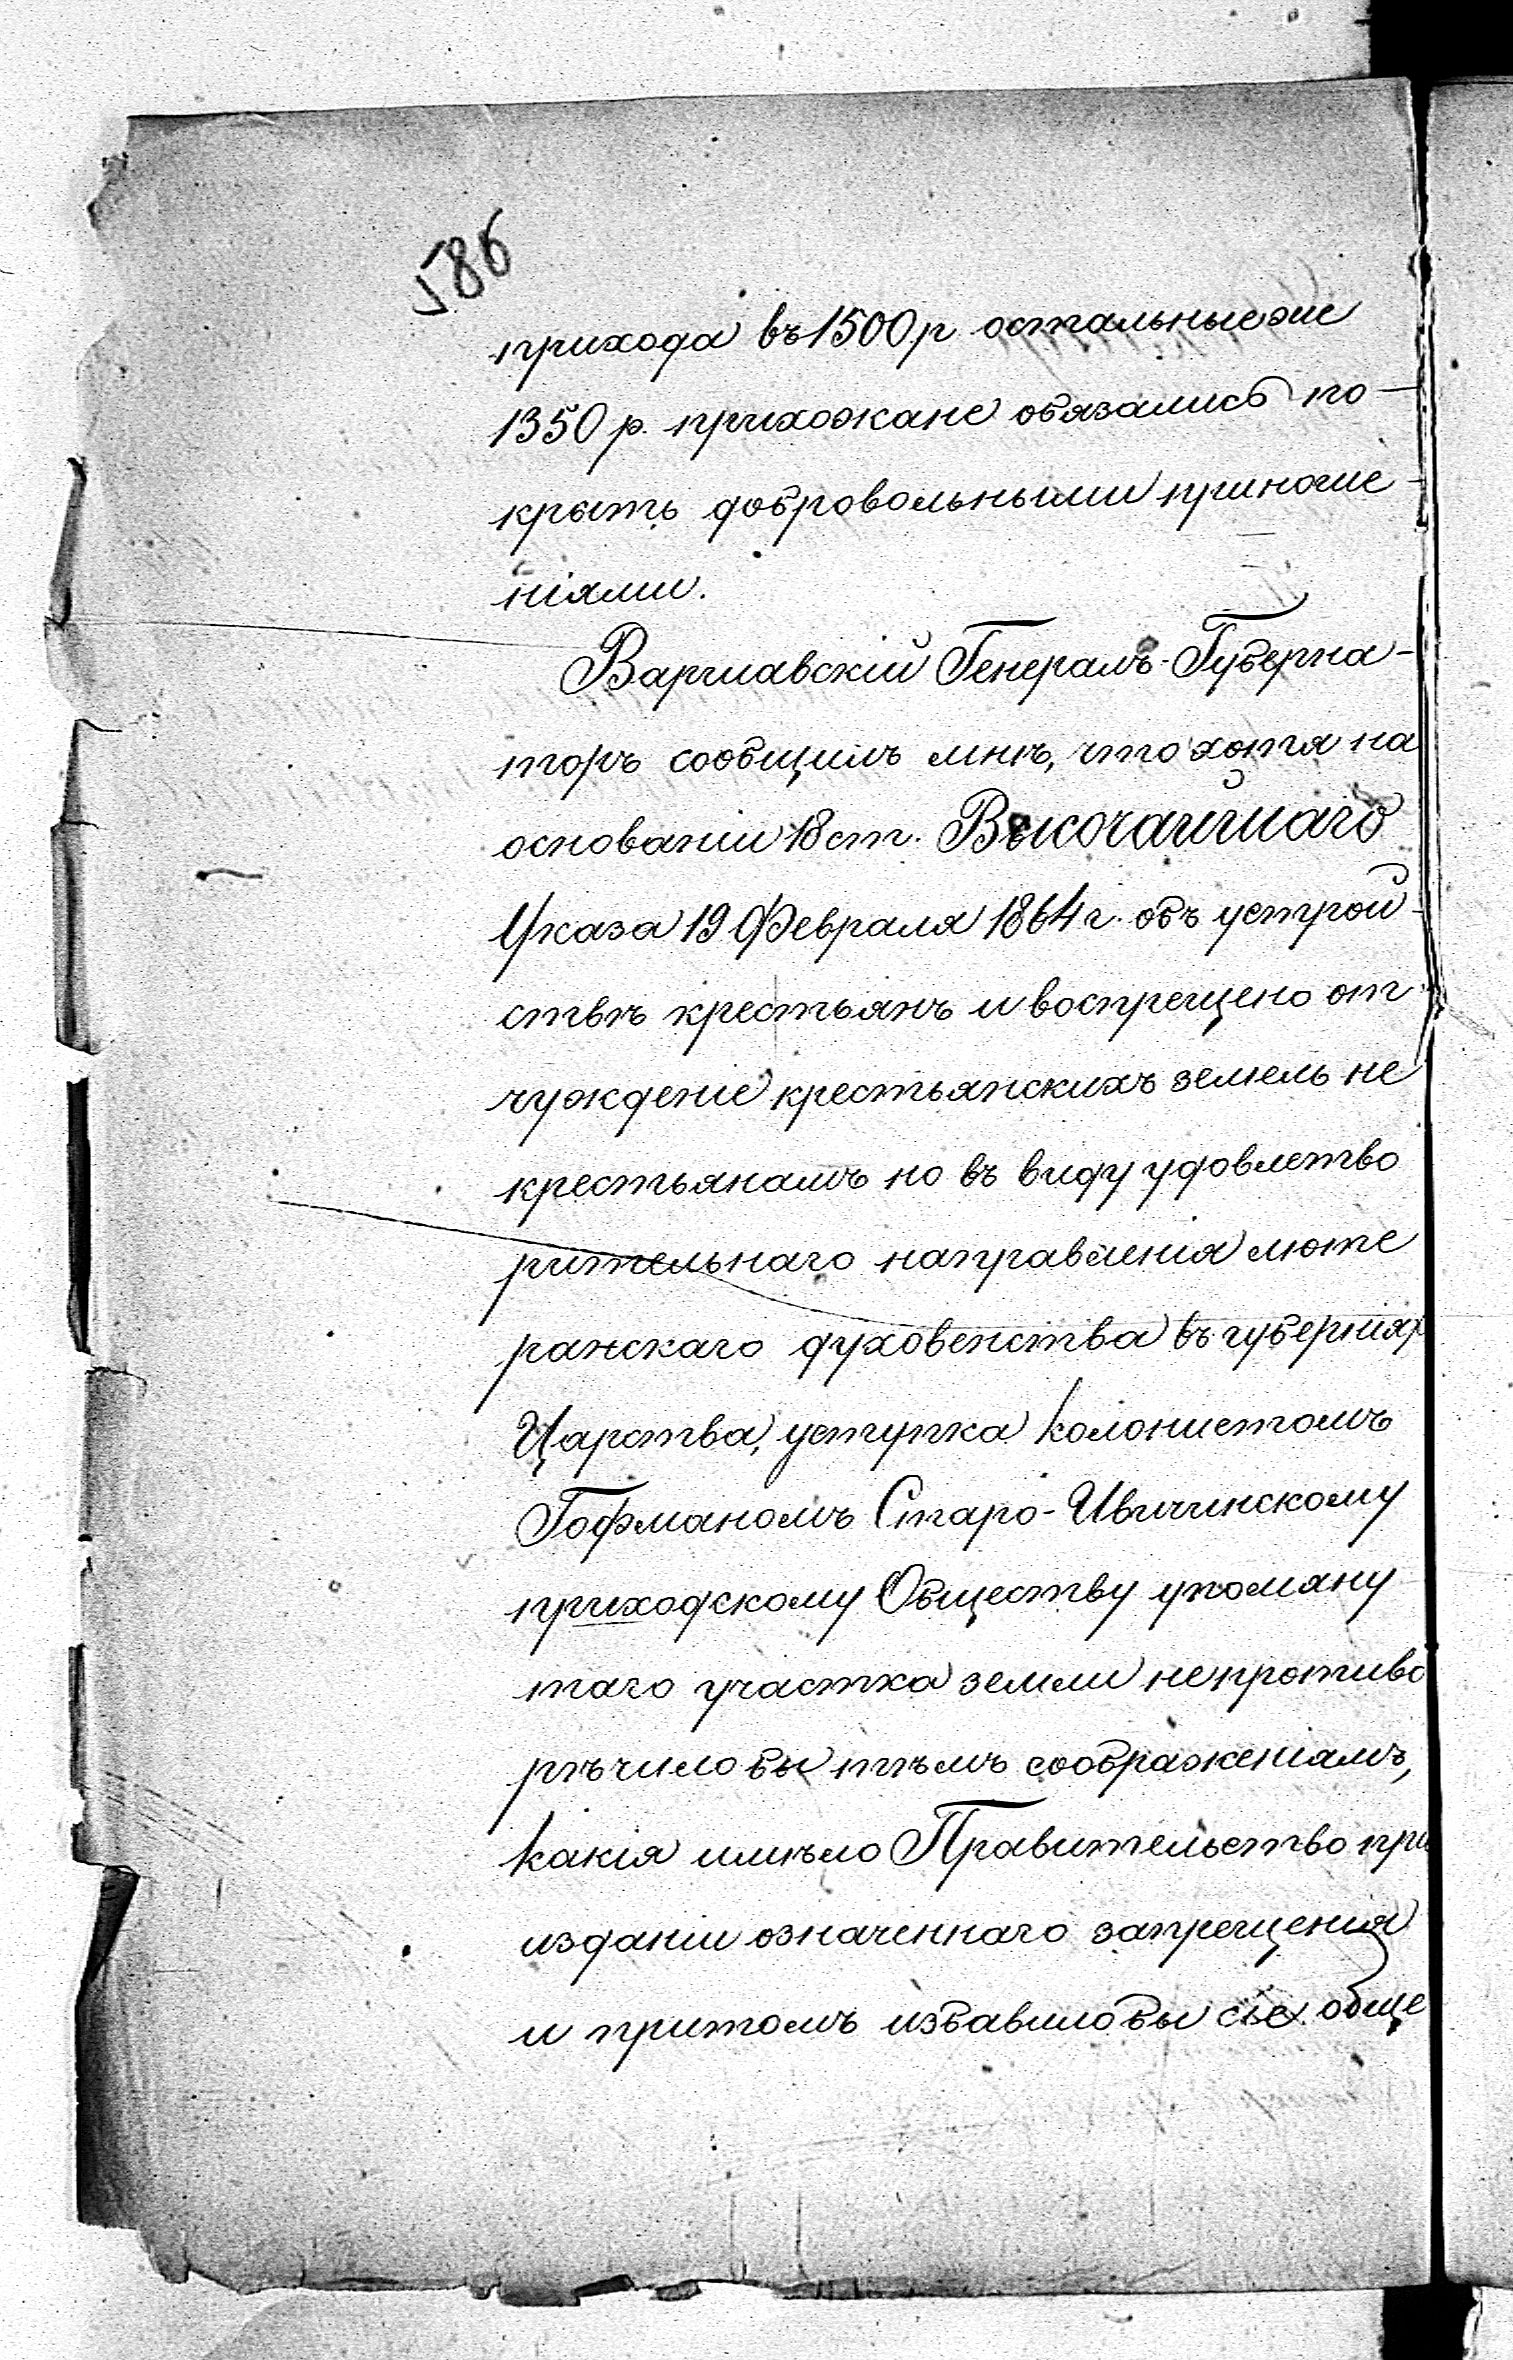 586
прихода въ 1500 р остальные же
1350 р. прихожане обязались по-
крыть добровольными приноше-
ніями.
Варшавскій Генералъ-Губерна-
торъ сообщилъ мнѣ, что хотя на
основаніи 18 ст. Высочайшаго
Указа 19 Февраля 1864 г. объ устрой-
ствѣ крестьянъ и воспрещено от-
чужденіе крестьянскихъ земель не
крестьянамъ но въ виду удовлетво
рительнаго направленія люте
ранскаго духовенства въ губерніях
Царства, уступка колонистомъ
Гофманомъ Старо-Ивичинскому
приходскому Обществу упомяну
таго участка земли не противо
рѣчило бы тѣмъ соображеніямъ,
какія имѣло Правительство при
изданіи означеннаго запрещенія
и притомъ избавило бы сіе обще